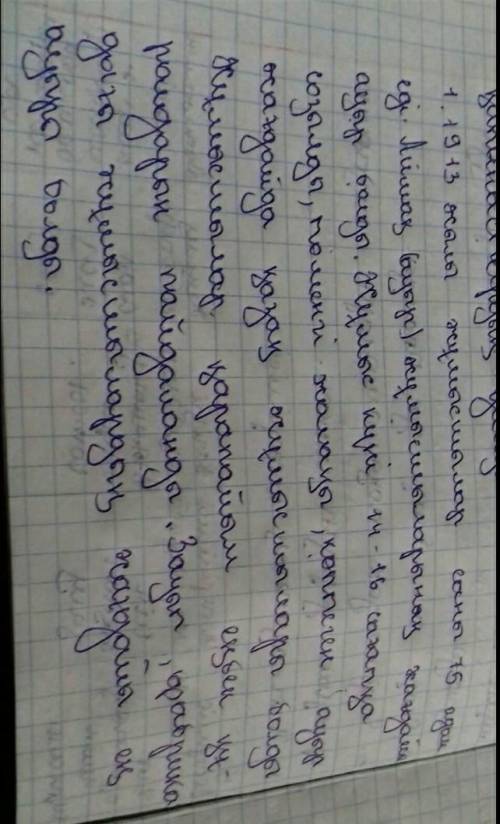 1. 1913 жылы жұмысшылар саны 75 адам
еді. (ауыр) жұмысшыларының жағдайы
ауыр болды. Жұмыс күні 14-16 сағатқа
созылды, төменгі жалақы, көптеген ауыр
жағдайда қазақ жұмысшылары болды
Жұмысшылар қарапайым еңбек құ-
ралдарын пайдаланды. Зауыт, фабрика
дағы жұмысшылардың жағдайы ең
ауыр болды.